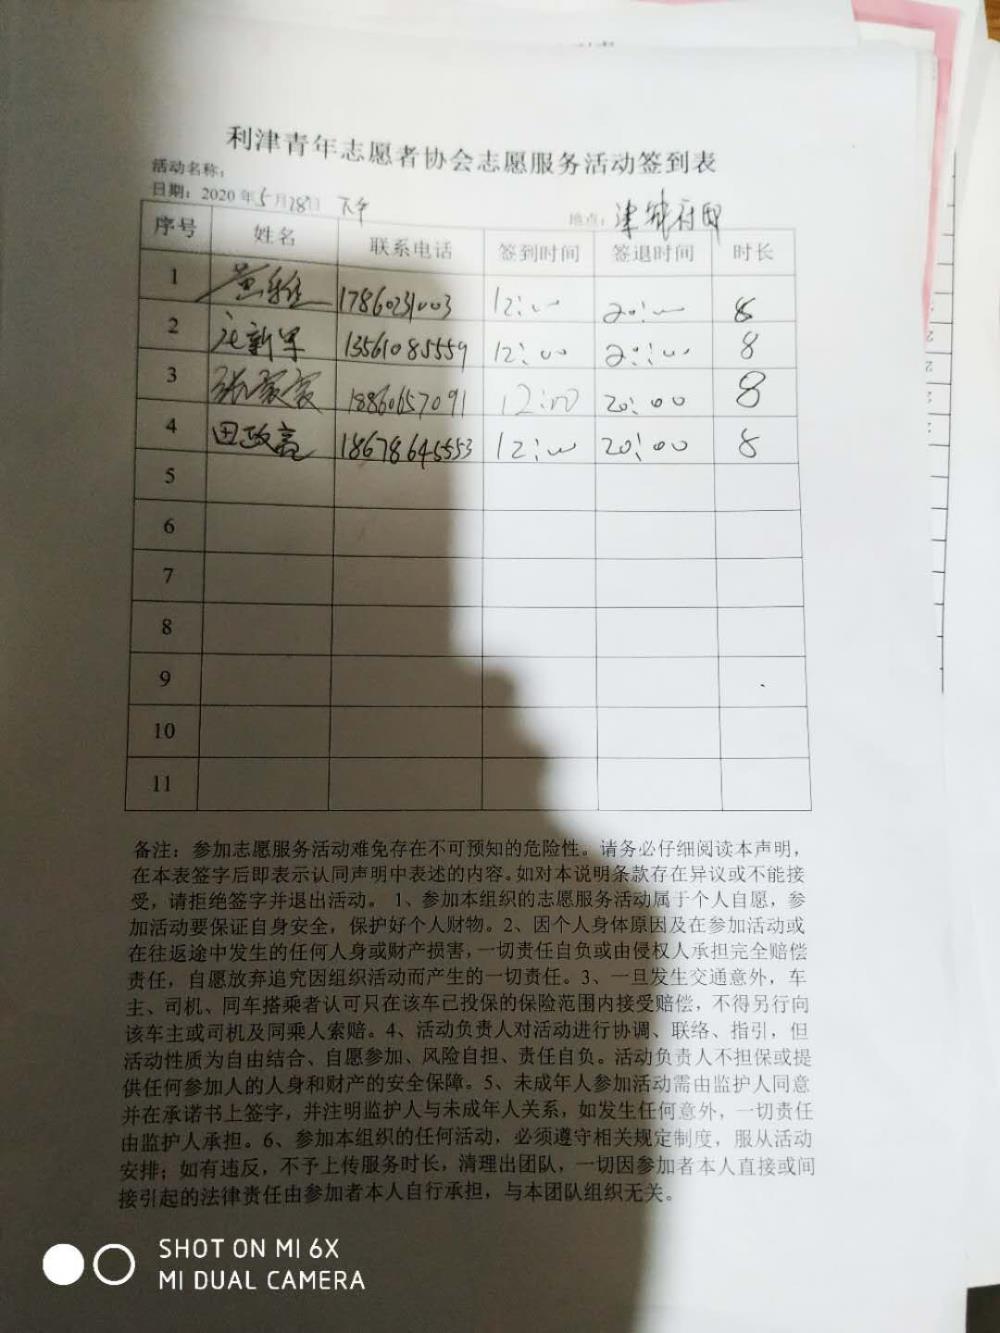 利津青年志愿者协会志愿服务活动签到表
活动名称：
日期：2020年5月28日 下午 地点：津苑府邸
序号 姓名 联系电话 签到时间 签退时间 时长
1 17860231003 12:00 20:00 8
2 新军 13561085559 12:00 20:00 8
3 张家家 18860657091 12:00 20:00 8
4 田政亮 18678645553 12:00 20:00 8
5
6
7
8
9
10
11
备注：参加志愿服务活动难免存在不可预知的危险性。请务必仔细阅读本声明，
在本表签字后即表示认同声明中表述的内容。如对本说明条款存在异议或不能接
受，请拒绝签字并退出活动。 1、参加本组织的志愿服务活动属于个人自愿，参
加活动要保证自身安全，保护好个人财物。2、因个人身体原因及在参加活动或
在往返途中发生的任何人身或财产损害，一切责任自负或由侵权人承担完全赔偿
责任，自愿放弃追究因组织活动而产生的一切责任。3、一旦发生交通意外，车
主、司机、同车搭乘者认可只在该车已投保的保险范围内接受赔偿，不得另行向
该车主或司机及同乘人索赔。4、活动负责人对活动进行协调、联络、指引，但
活动性质为自由结合、自愿参加、风险自担、责任自负。活动负责人不担保或提
供任何参加人的人身和财产的安全保障。5、未成年人参加活动需由监护人同意
并在承诺书上签字，并注明监护人与未成年人关系，如发生任何意外，一切责任
由监护人承担。6、参加本组织的任何活动，必须遵守相关规定制度，服从活动
安排；如有违反，不予上传服务时长，清理出团队，一切因参加者本人直接或间
接引起的法律责任由参加者本人自行承担，与本团队组织无关。
SHOT ON MI 6X
MI DUAL CAMERA